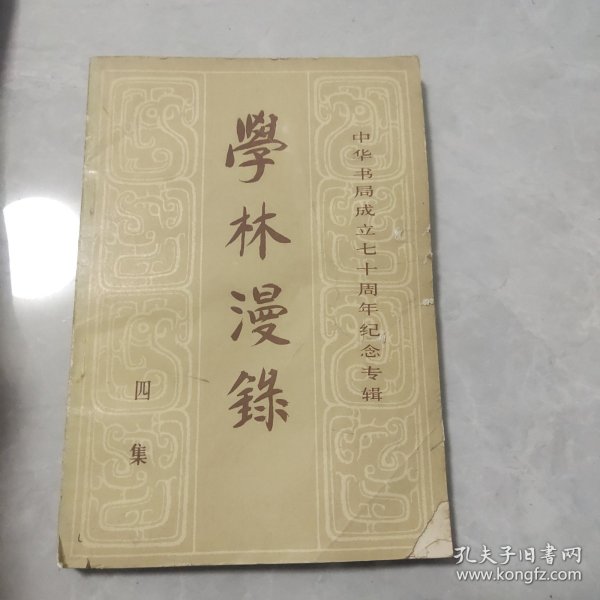 中华书局成立七十周年纪念专辑
學林漫錄
四集
孔夫子旧書网
www.kongfz.com